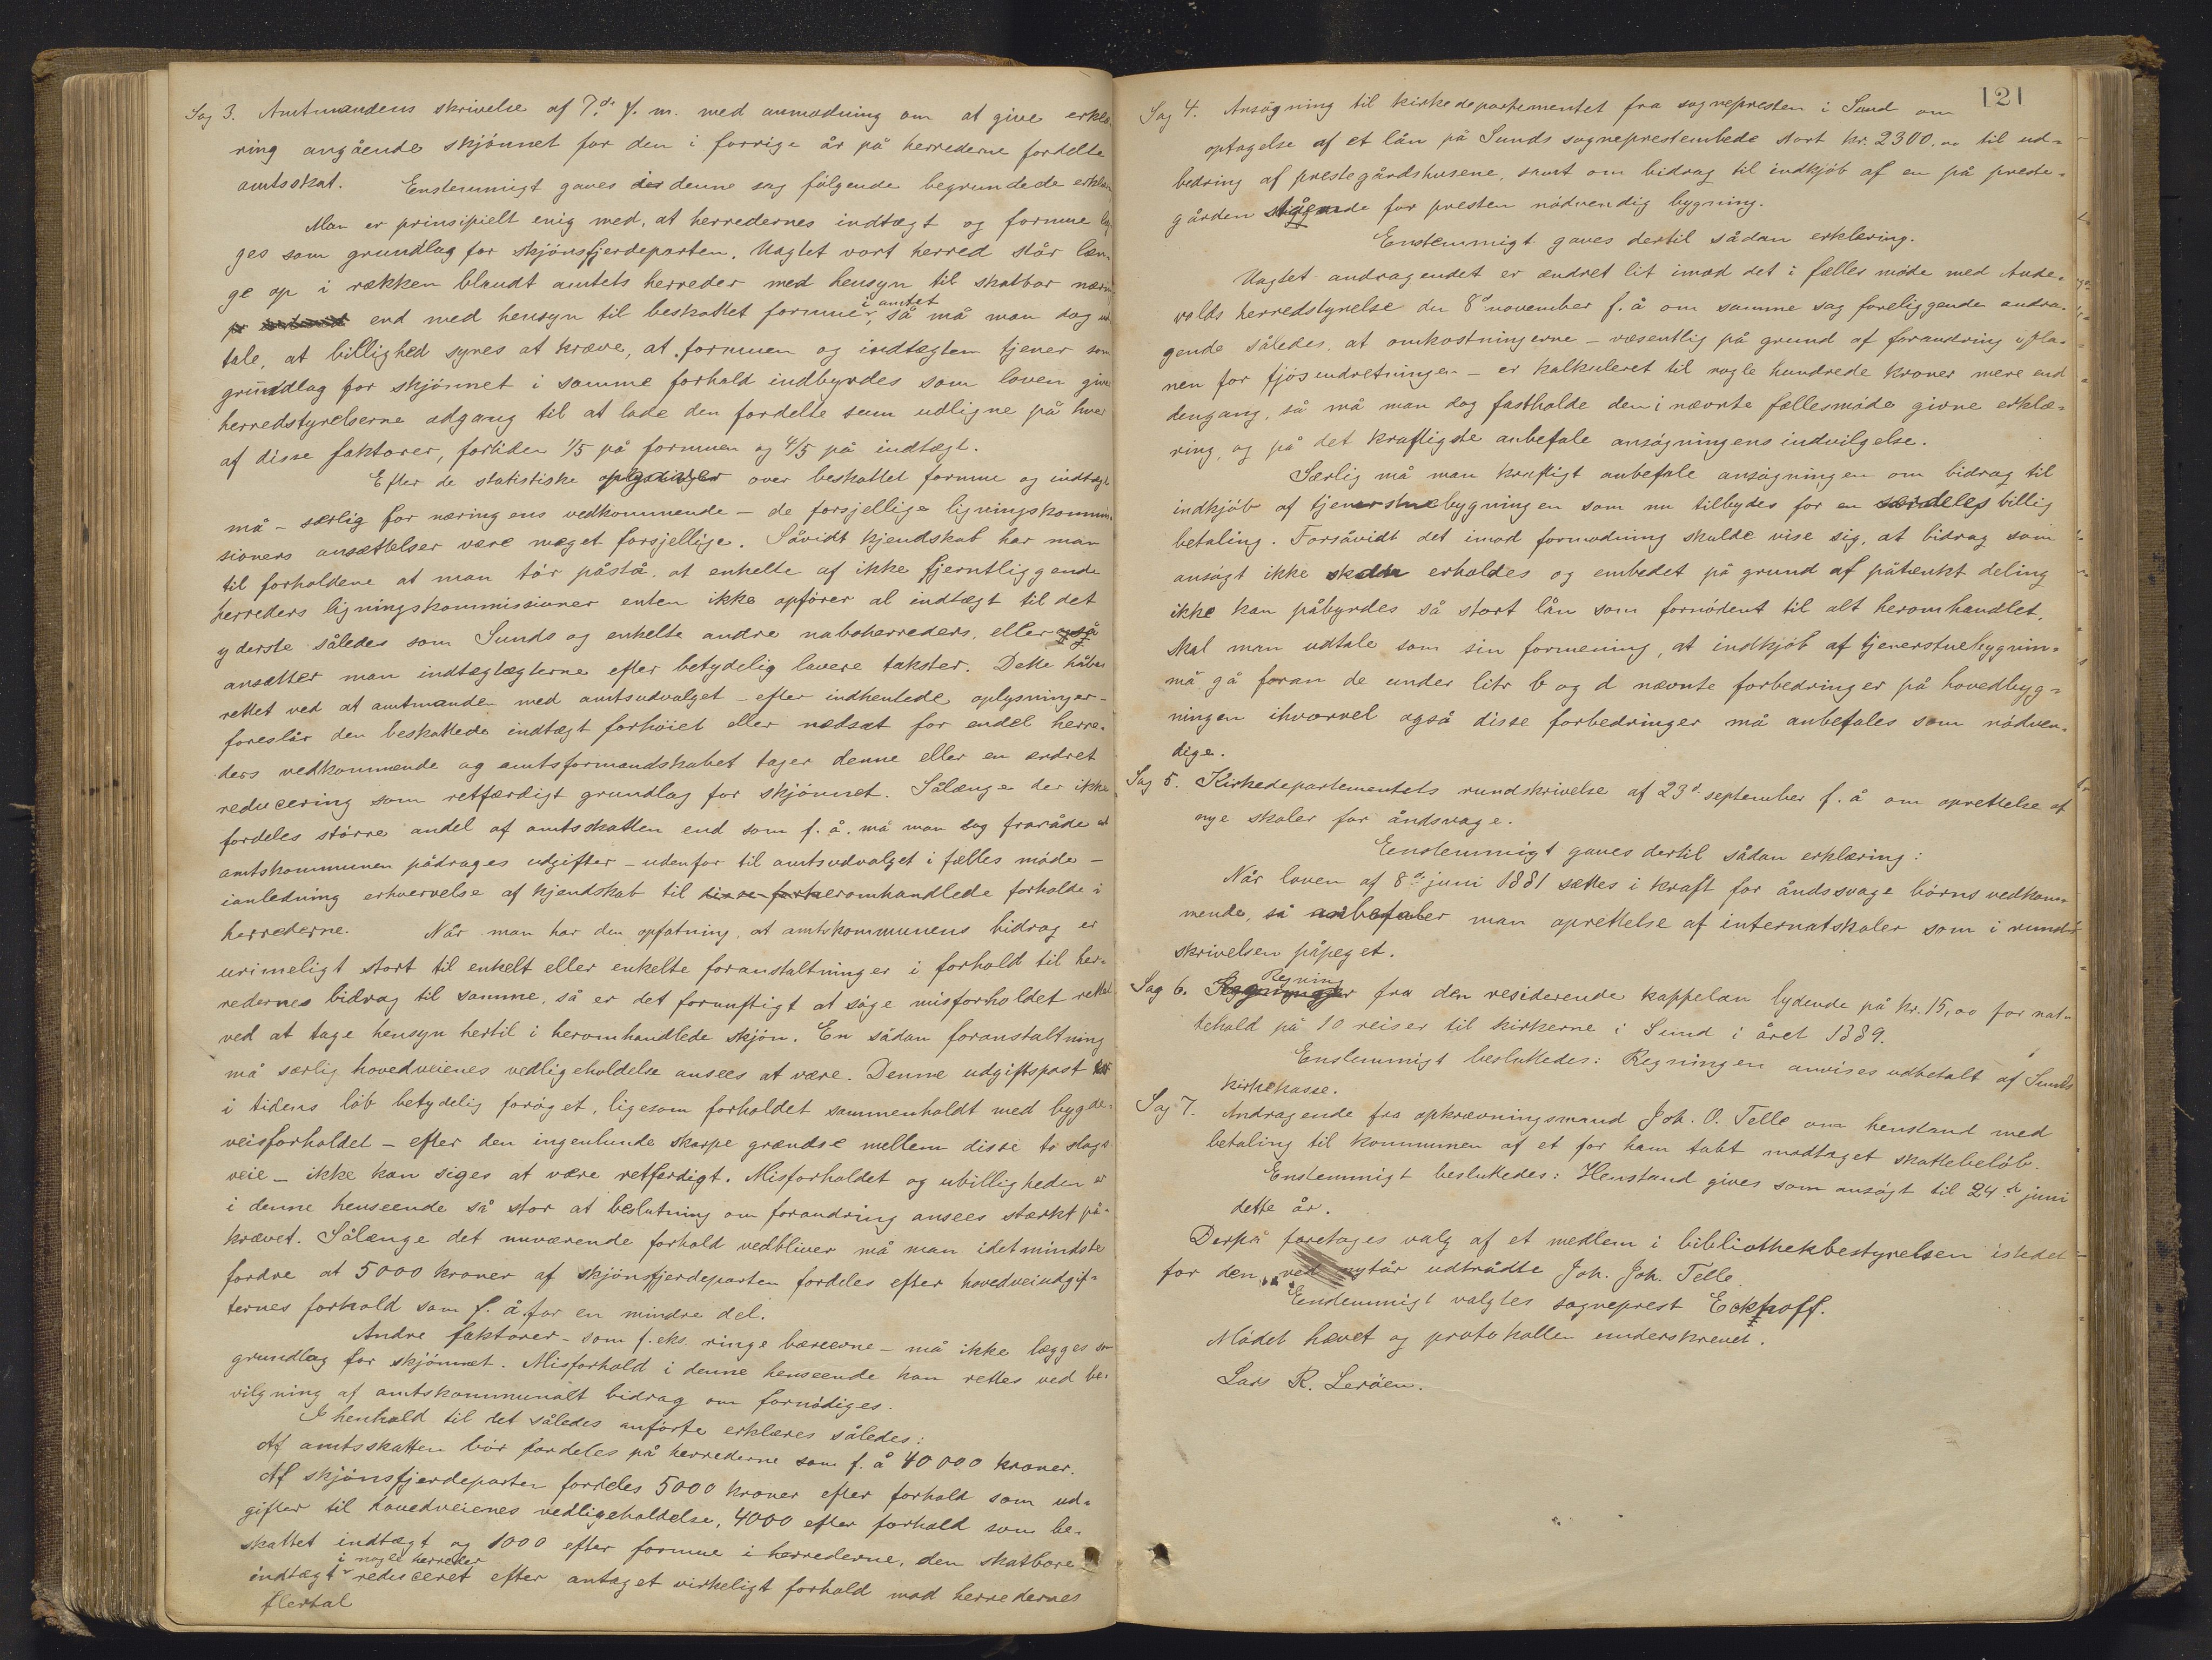 Sag 3. Amtmandens skrivelse af 7de f. m. med anmodning om at give erklæ-
ring angående skjønnet for den i forrige år på herrederne fordelte
amtsskat. Enstemmigt gaves i denne sag følgende begrundede erklæ
Man er prinsipielt enig med, at herredernes indtægt og formue læg
ges som grundlag for skjønsfjerdeparten. Uagtet vort herred står læn-
ge op i rækken blandt amtets herreder med hensyn til skatbar næring
i amtet
end med hensyn til beskattet formue, så må man dog ud
tale, at billighed synes at kræve, at formuen og indtægten tjener som
grundlag for skjønnet i samme forhold indbyrdes som loven giver
herredstyrelserne adgang til at lade den fordelte sum udligne på hver
af disse faktorer, fortiden 1/5 på formuen og 4/5 på indtægt.
Efter de statistiske opgaver over beskattet formue og indtægt
må - særlig for næringens vedkommende - de forsjellige ligningskommis-
sioners ansættelser være meget forsjellige. Såvidt kjendskab har man
til forholdene at man tør påstå, at enkelte af ikke fjerntliggende
herreders ligningskommissioner enten ikke opfører al indtægt til det
yderste således som Sunds og enkelte andre naboherreders, eller også
ansætter man indtægtægterne efter betydelig lavere takster. Dette håbes
rettet ved at amtmanden med amtsudvalget - efter indhentede oplysninger -
foreslår den beskattede indtægt forhøiet eller nedsat for endel herre-
ders vedkommende og amtsformandskabet tager denne eller en endret
reducering som retfærdigt grundlag for skjønnet. Sålænge der ikke
fordeles større andel af amtsskatten end som f. å. må man dog fraråde at
amtskommunen pådrages udgifter - udenfor til amtsudvalget i fælles møde -
ianledning erhvervelse af kjendskab til heromhandlede forholde i
herrederne. Når man har den opfatning, at amtskommunens bidrag er
urimeligt stort til enkelt eller enkelte foranstaltninger i forhold til her-
redernes bidrag til samme, så er det fornuftigt at søge misforholdet rettet
ved at tage hensyn hertil i heromhandlede skjøn. En sådan foranstaltning
må særlig hovedveienes vedligeholdelse ansees at være. Denne udgiftspost
i tidens løb betydelig forøget, ligesom forholdet sammenholdt med bygde-
veisforholdet - efter den ingenlunde skarpe grændse mellem disse to slags
veie - ikke kan siges at være retferdigt. Misforholdet og ubilligheden er
i denne henseende så stor at beslutning om forandring ansees stærkt på-
krævet. Sålænge det nuværende forhold vedbliver må man idetmindste
fordre at 5000 kroner af skjønsfjerdeparten fordeles efter hovedveiudgif-
ternes forhold som f. å. for en mindre del.
Andre faktorer - som f. eks. ringe bæreevne - må ikke lægges som
grundlag for skjønnet. Misforhold i denne henseende kan rettes ved be-
vilgning af amtskommunalt bidrag om fornødiges.
I henhold til det således anførte erklæres således:
Af amtsskatten bør fordeles på herrederne som f. å 40000 kroner.
Af skjønsfjerdeparten fordeles 5000 kroner efter forhold som ud-
gifter til hovedveienes vedligeholdelse, 4000 efter forhold som be-
skattet indtægt og 1000 efter formue i herrederne, den skatbare
i nogle herreder
indtægt reduceret efter antaget virkeligt forhold mod herredernes
flertal
121
Sag 4. Ansøgning til kirkedepartementet fra sognepresten i Sund om
optagelse af et lån på Sunds sogneprestembede stort kr. 2300.00 til ud-
bedring af prestegårdshusene, samt om bidrag til indkjøb af en på preste-
gården stående for presten nødvendig bygning.
Enstemmigt gaves dertil sådan erklæring.
Uagtet andragendet er ændret lit imod det i fælles møde med Aude-
volds herredstyrelse den 8de november f. å om samme sag foreliggende andra-
gende således, at omkostningerne - væsentlig på grund af forandring i pla-
nen for fjøsindretningen - er kalkuleret til nogle hundrede kroner mere end
dengang, så må man dog fastholde den i nævnte fællesmøde givne erklæ-
ring, og på det kraftigste anbefale ansøgningens indvilgelse.
Særlig må man kraftigt anbefale ansøgningen om bidrag til
indkjøb af tjenerstuebygningen som nu tilbydes for en særdeles billig
betaling. Forsåvidt det imod formodning skulde vise sig, at bidrag som
ansøgt ikke skulde erholdes og embedet på grund af påtænkt deling
ikke kan påbyrdes så stort lån som fornødent til alt heromhandlet,
skal man udtale som sin formening, at indkjøb af tjenerstuebygnin-
må gå foran de under litr b og d nævnte forbedringer på hovedbyg-
ningen ihvorvel også disse forbedringer må anbefales som nødven-
dige.
Sag 5. Kirkedepartementets rundskrivelse af 23de september f. å om oprettelse af
nye skoler for åndsvage.
Eenstemmigt gaves dertil sådan erklæring:
Når loven af 8de juni 1881 sættes i kraft for åndssvage børns vedkom-
mende, så anbefaler man oprettelse af internatskoler som i rund-
skrivelsen påpeget.
Regning
Sag 6. fra den residerende kappelan lydende på kr. 15,00 for nat-
tehold på 10 reiser til kirkerne i Sund i året 1889.
Enstemmigt besluttedes: Regningen anvises udbetalt af Sunds
kirkekasse.
Sag 7. Andragende fra opkrævningsmand Joh. O. Telle om henstand med
betaling til kommunen af et for ham tabt modtaget skattebeløb.
Enstemmigt besluttedes: Henstand gives som ansøgt til 24de juni
dette år.
Derpå foretages valg af et medlem i bibliothekbestyrelsen istedet-
for den ved nytår udtrådte Joh. Joh. Telle.
Eenstemmigt valgtes sogneprest Eckhoff.
Mødet hævet og protokollen underskrevet.
Lars R. Lerøen.